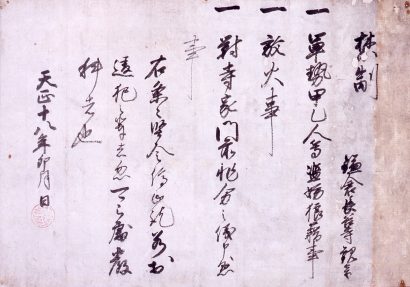 禁制
一 軍勢甲乙人等濫妨狼藉事
一 放火事
一 對寺家門前非分之儀申懸
事
右条々堅令停止訖若於
違犯之輩者忽可被處嚴
科者也
天正十八年卯月日